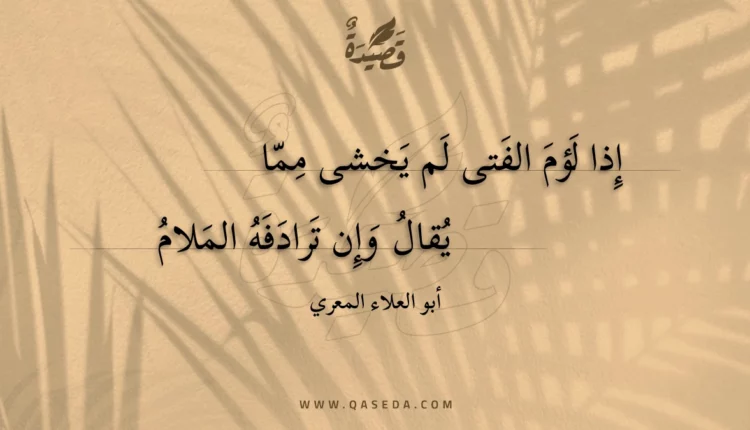 قَصِيدَةٌ
إِذا لَؤُمَ الفَتى لَم يَخشى مِمّا
يُقالُ وَإِن تَرادَفَهُ المَلامُ
أبو العلاء المعري
WWW.QASEDA.COM